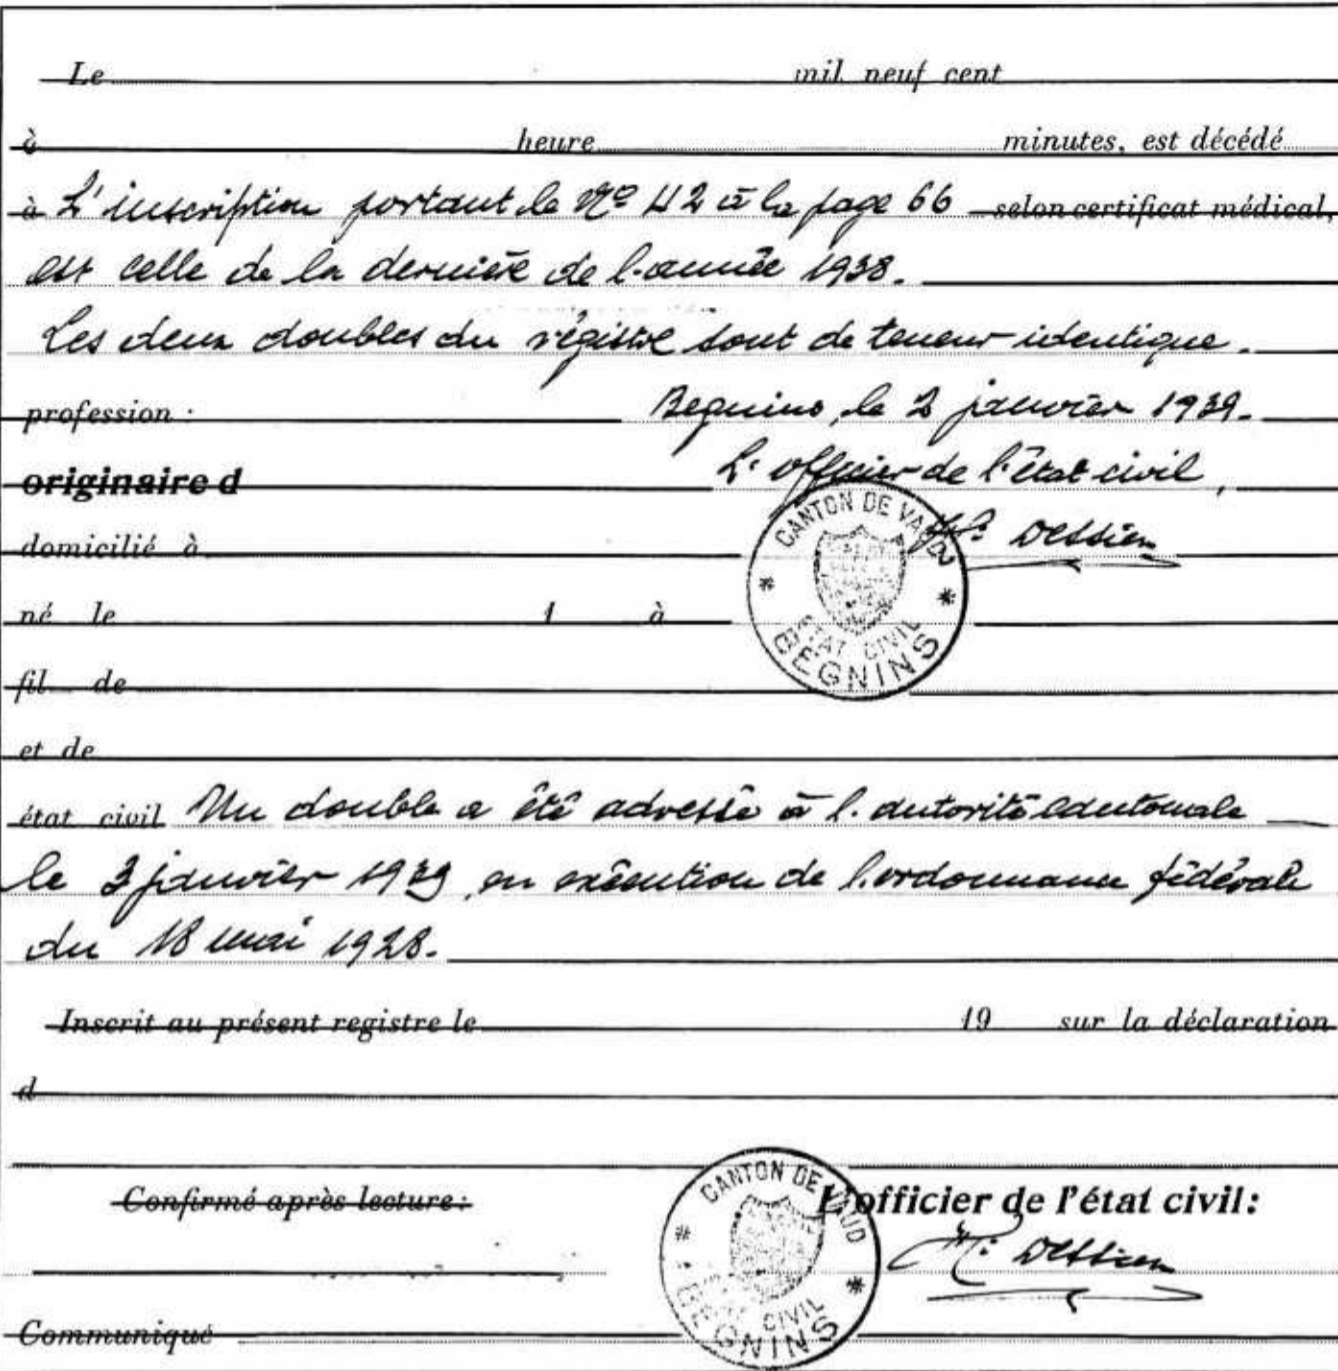 Le mil neuf cent
à heure minutes, est décédé
à L'inscription portant le Nº 42 à la page 66 selon certificat médical,
est celle de la dernière de l'année 1938.
Les deux doubles du régistre sont de teneur identique.
profession : Begnins, le 2 janvier 1939.
originaire d L'officier de l'état civil,
domicilié à
CANTON DE VAUD
ETAT CIVIL
BEGNINS
né le 1 à
fil de
et de
état civil Un double a été adressé à l'autorité cantonale
le 3 janvier 1939 en exécution de l'ordonnance fédérale
du 18 mai 1928.
Inscrit au présent registre le 19 sur la déclaration
d
Confirmé après lecture: L'officier de l'état civil:
CANTON DE VAUD
CIVIL
BEGNINS
Communiqué